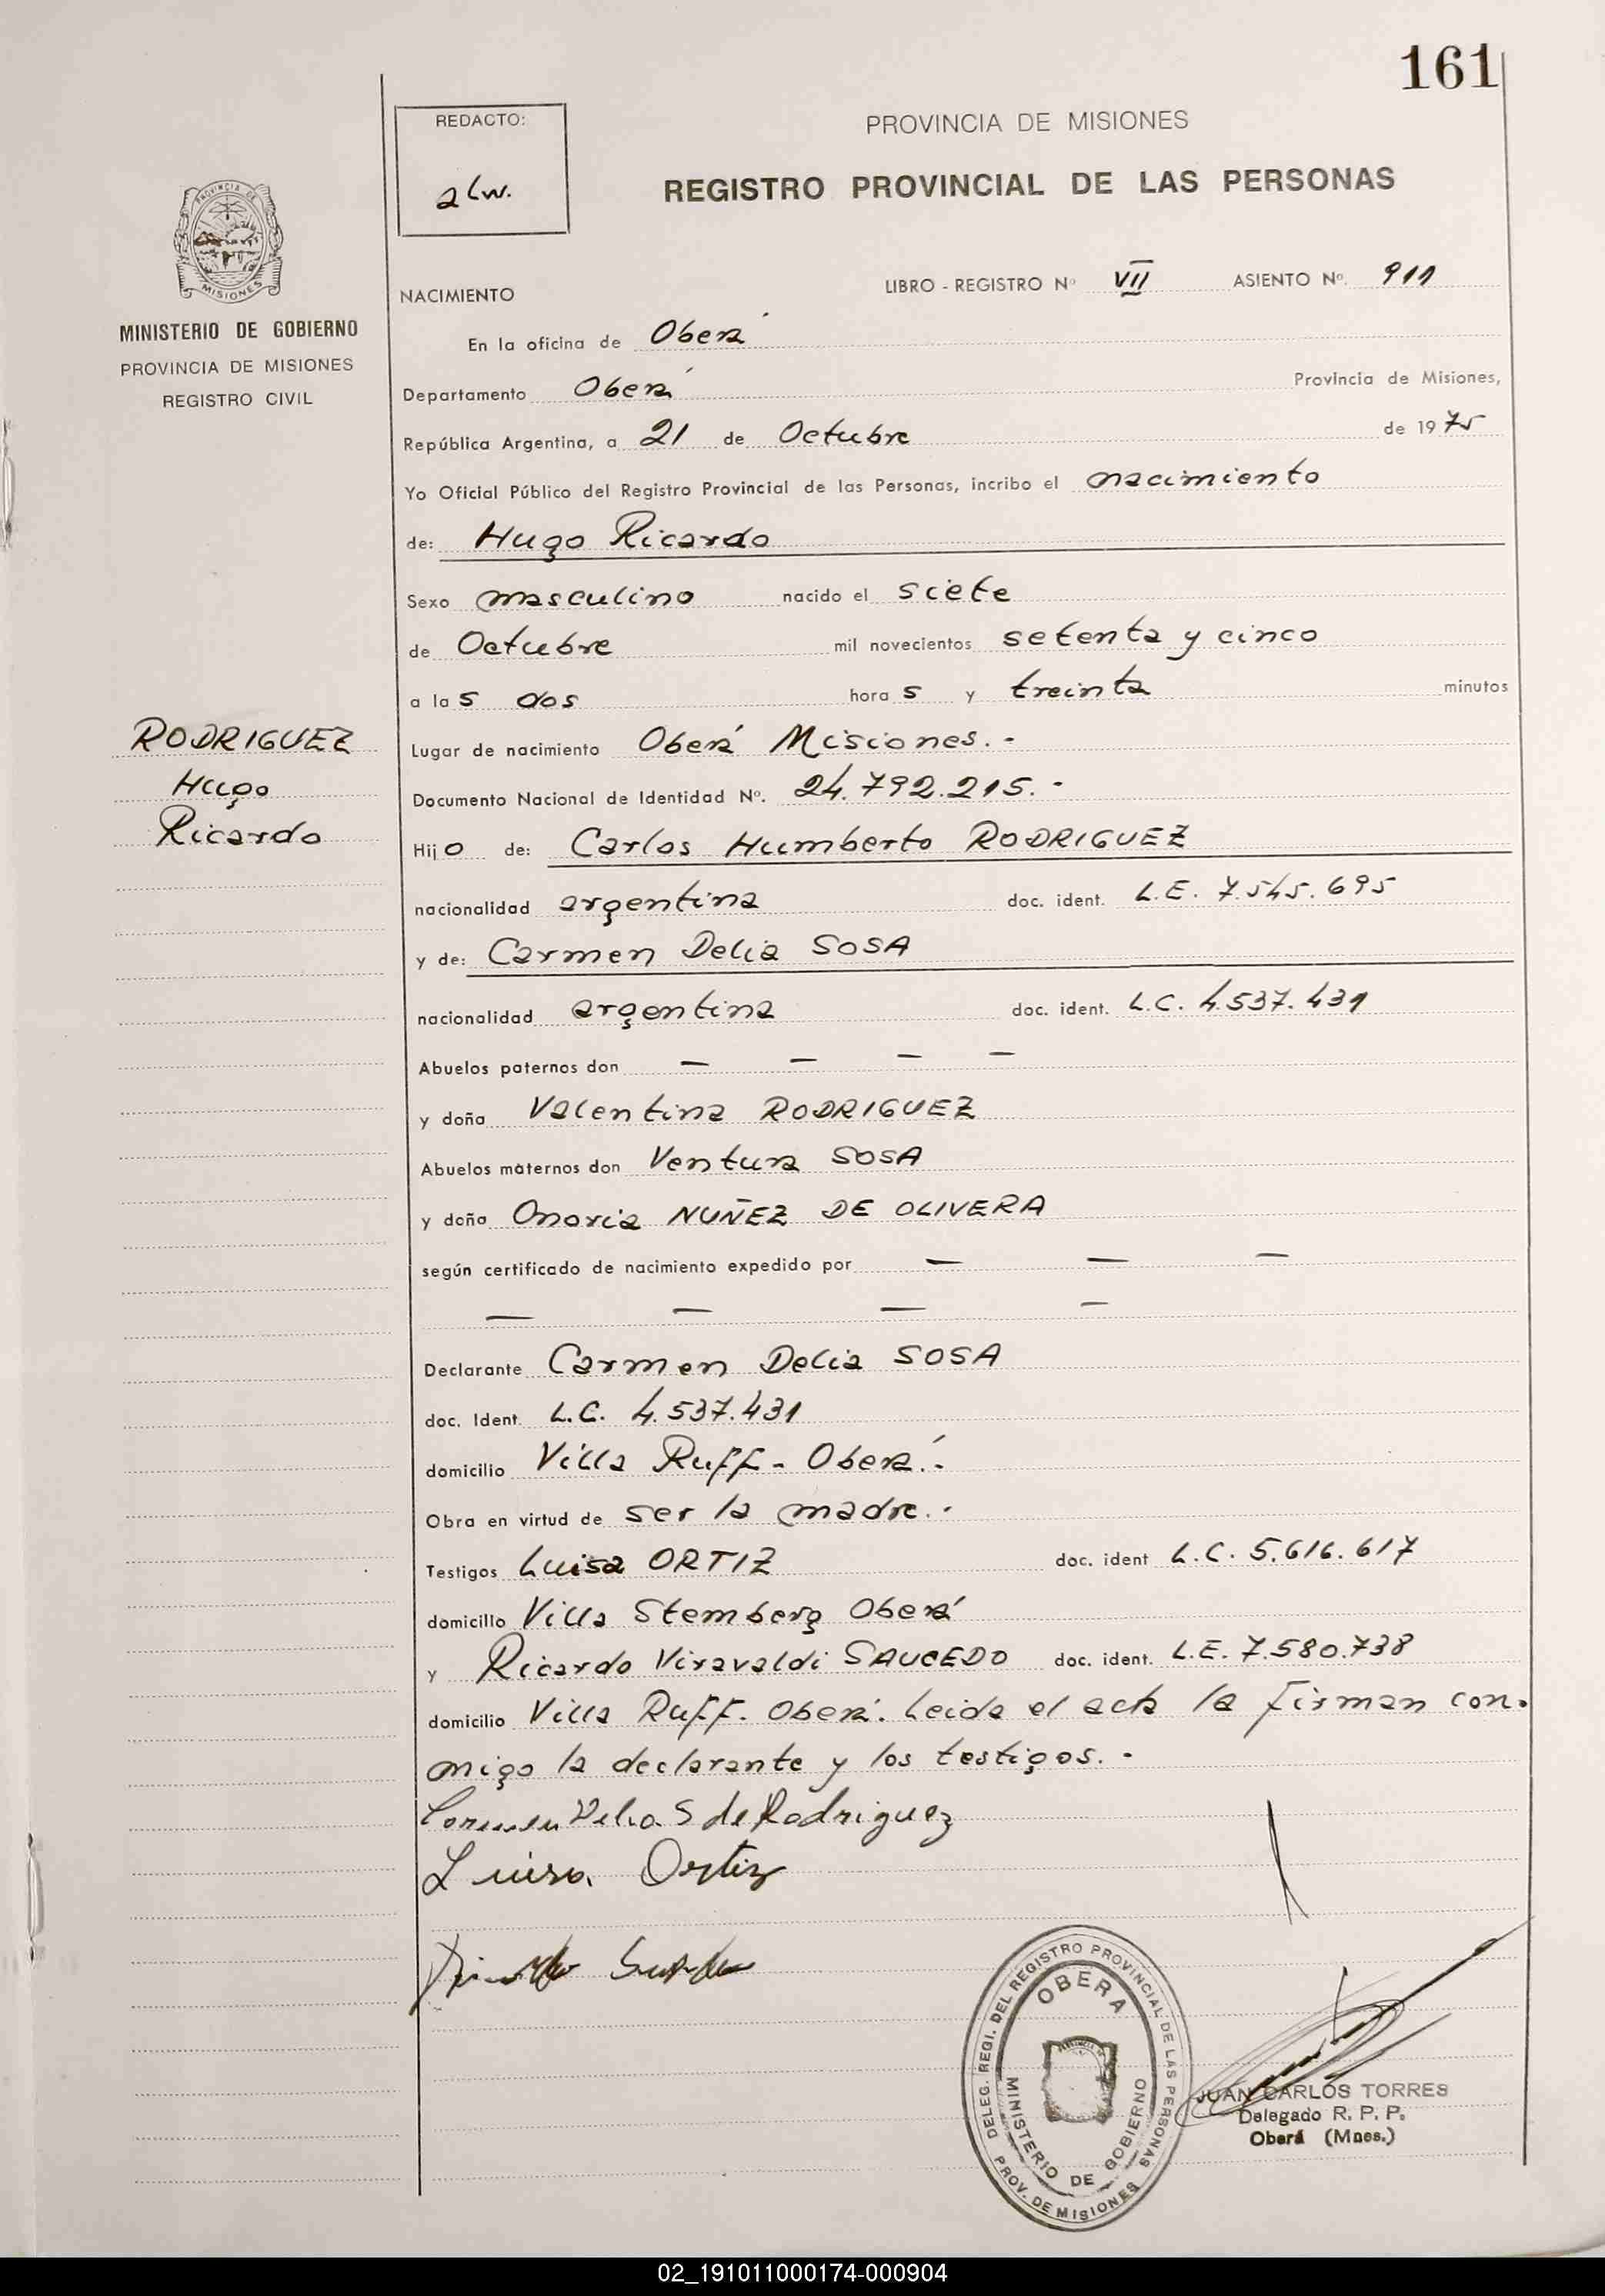 161
REDACTO:
alw.
PROVINCIA DE MISIONES
REGISTRO PROVINCIAL DE LAS PERSONAS
MISIONES
MINISTERIO DE GOBIERNO
PROVINCIA DE MISIONES
REGISTRO CIVIL
LIBRO - REGISTRO Nº VII ASIENTO Nº. 911
NACIMIENTO
En la oficina de Oberá
Departamento Oberá Provincia de Misiones,
República Argentina, a 21 de Octubre de 1975
Yo Oficial Público del Registro Provincial de las Personas, incribo el nacimiento
de: Hugo Ricardo
Sexo masculino nacido el siete
de Octubre mil novecientos setenta y cinco
a las dos horas y treinta minutos
RODRIGUEZ
Hugo
Ricardo
Lugar de nacimiento Oberá Misiones.-
Documento Nacional de Identidad Nº. 24.792.215.-
Hijo de: Carlos Humberto RODRIGUEZ
nacionalidad argentina doc. ident. L.E. 7.545.695
y de: Carmen Delia SOSA
nacionalidad argentina doc. ident. L.C. 4.537.431
Abuelos paternos don — — — —
y doña Valentina RODRIGUEZ
Abuelos maternos don Ventura SOSA
y doña Onoria NUÑEZ DE OLIVERA
según certificado de nacimiento expedido por — — —
— — — —
Declarante Carmen Delia SOSA
doc. Ident. L.C. 4.537.431
domicilio Villa Ruff - Oberá.-
Obra en virtud de ser la madre.-
Testigos Luisa ORTIZ doc. ident L.C. 5.616.617
domicilio Villa Stemberg Oberá
y Ricardo Viravaldi SAUCEDO doc. ident. L.E. 7.580.738
domicilio Villa Ruff. Oberá. Leida el acta la firman con-
migo la declarante y los testigos.-
Carmen Delia S de Rodriguez
Luisa Ortiz
DELEG. REGI. DEL REGISTRO PROVINCIAL DE LAS PERSONAS
OBERA
MINISTERIO DE GOBIERNO
PROV. DE MISIONES
JUAN CARLOS TORRES
Delegado R. P. P.
Oberá (Mnes.)
02_191011000174-000904